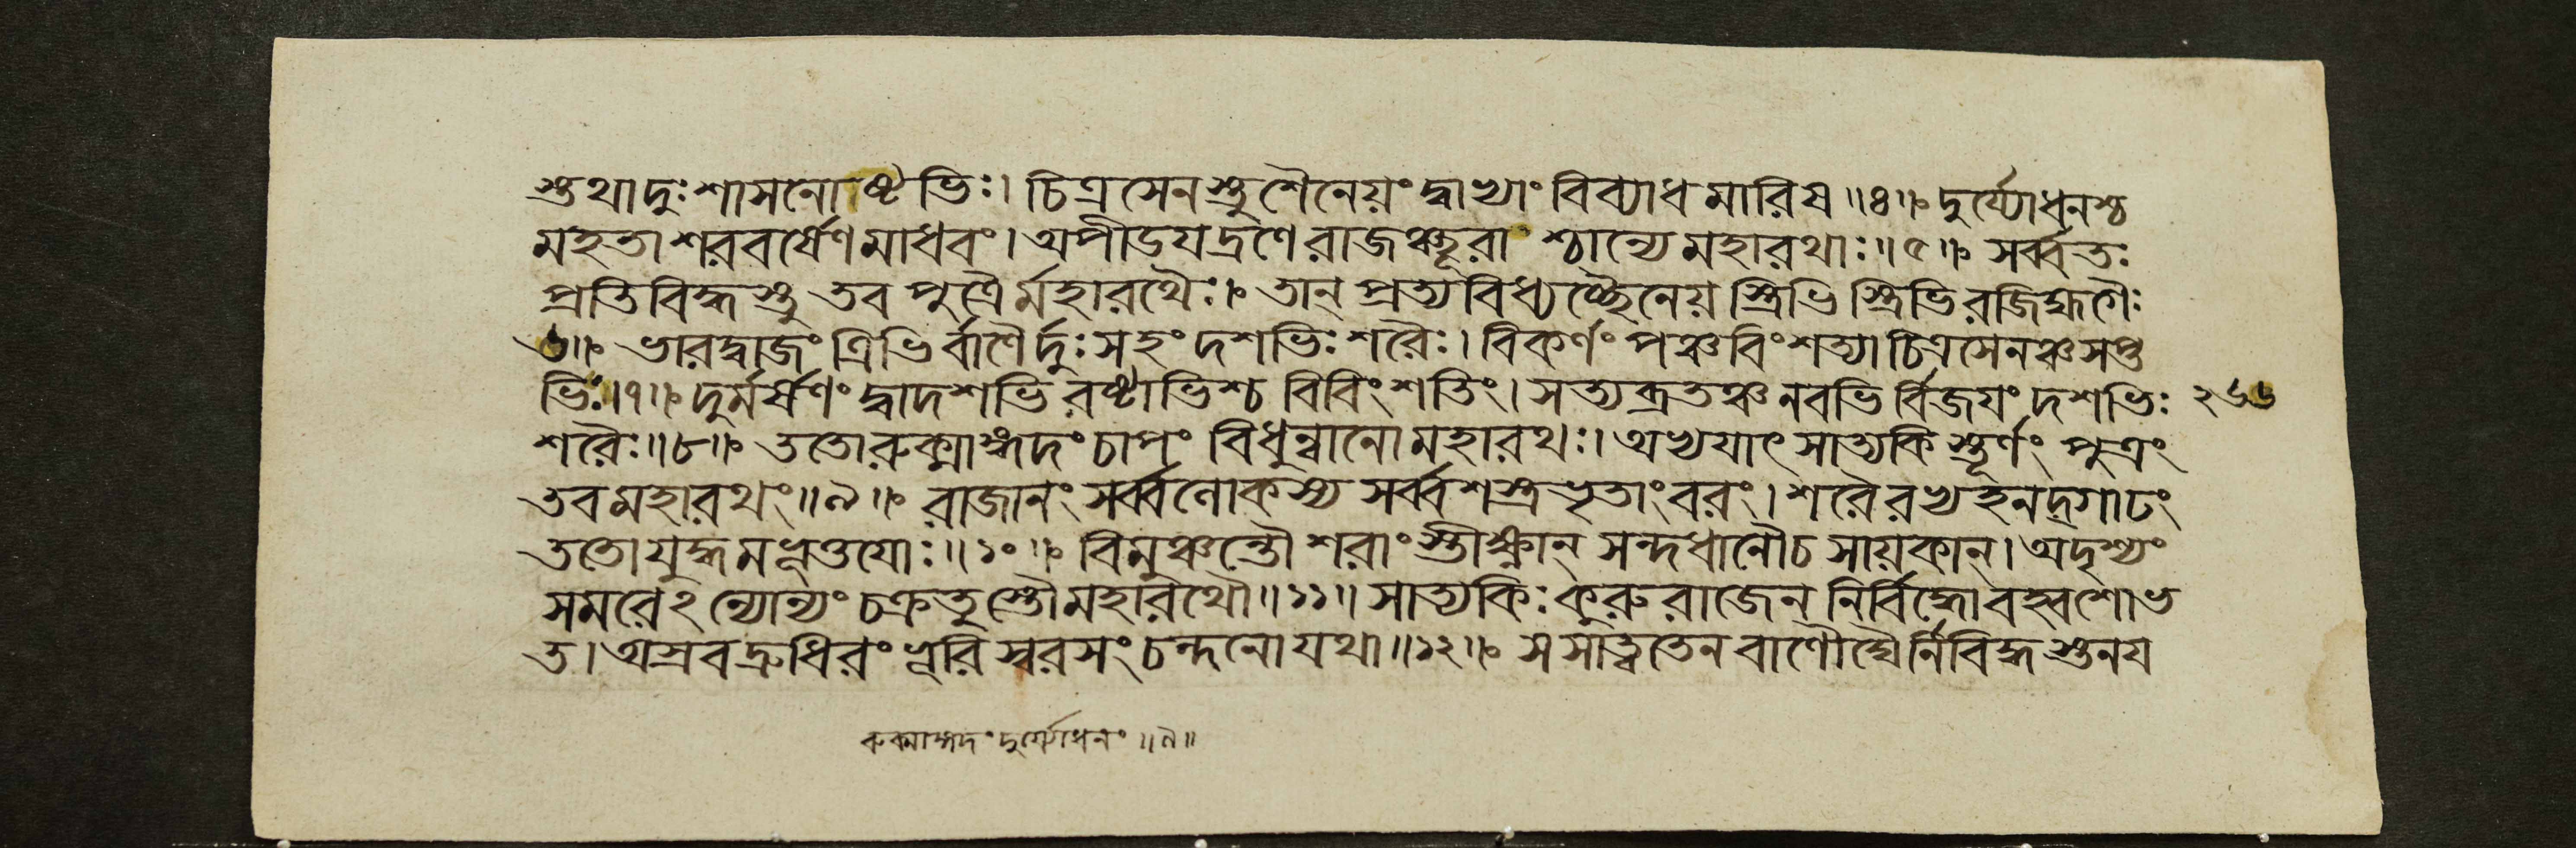 স্তথাদুঃশাসনোঽষ্টভিঃ। চিত্রসেনস্তু শৈনেয়ং দ্বাভ্যাং বিব্যাধ মারিষ॥৪॥ দুর্য্যোধনশ্চ
মহতা শরবর্ষেণ মাধবং। অপীডযদ্রণে রাজঞ্ছূরাশ্চান্যে মহারথাঃ॥৫॥ সর্ব্বতঃ
প্রতিবিদ্ধস্তু তব পুত্রৈর্মহারথৈঃ। তান্ প্রত্যবিধ্যচ্ছৈনেয়স্ত্রিভিস্ত্রিভিরজিহ্মগৈঃ
৬॥ ভারদ্বাজং ত্রিভির্বাণৈর্দুঃসহং দশভিঃ শরৈঃ। বিকর্ণং পঞ্চবিংশত্যা চিত্রসেনঞ্চ সপ্ত
ভিঃ।৭॥ দুর্মর্ষণং দ্বাদশভিরষ্টাভিশ্চ বিবিংশতিং। সত্যব্রতঞ্চ নবভির্বিজযং দশভিঃ ২৬৬
শরৈঃ॥৮॥ ততো রুক্মাঙ্গদং চাপং বিধুন্বানো মহারথঃ। অভ্যযাৎ সাত্যকিস্তূর্ণং পুত্রং
তব মহারথং॥৯॥ রাজানং সর্ব্বলোকস্য সর্ব্বশস্ত্রভৃতাংবরং। শরৈরভ্যহনদ্গাঢং
ততো যুদ্ধমভূত্তযোঃ॥১০॥ বিমুঞ্চন্তৌ শরাংস্তীক্ষ্ণান্ সন্দধানৌ চ সায়কান্। অদৃশ্যং
সমরেঽন্যোন্যং চক্রতুস্তৌ মহারথৌ॥১১॥ সাত্যকিঃ কুরুরাজেন নির্বিদ্ধো বহ্বশোভ
ত। অস্রবদ্রুধিরং ভূরি স্বরসং চন্দনো যথা॥১২॥ স সাত্বতেন বাণৌঘৈর্নির্বিদ্ধস্তনয
রুক্মাঙ্গদং দুর্য্যোধনং॥৯॥